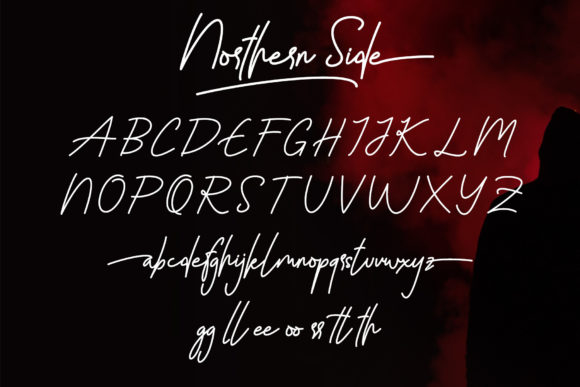 Northern Side
ABCDEFGHIJKLM
NOPQRSTUVWXYZ
abcdefghijklmnopqrstuvwxyz
gg ll ee oo ss tt th